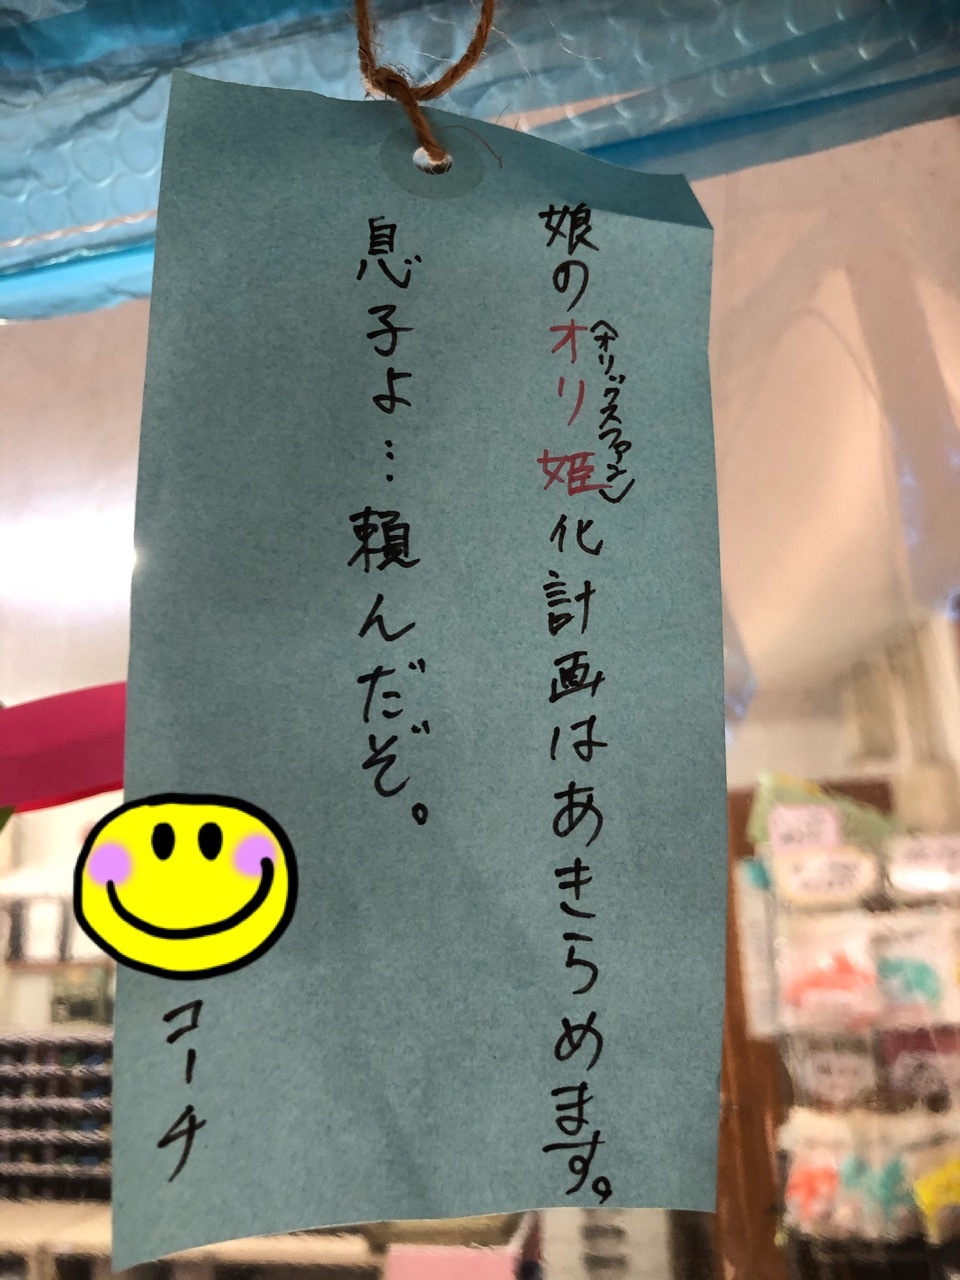 娘のオリ姫化計画はあきらめます。
(オリックスファン)
息子よ…頼んだぞ。
コーチ